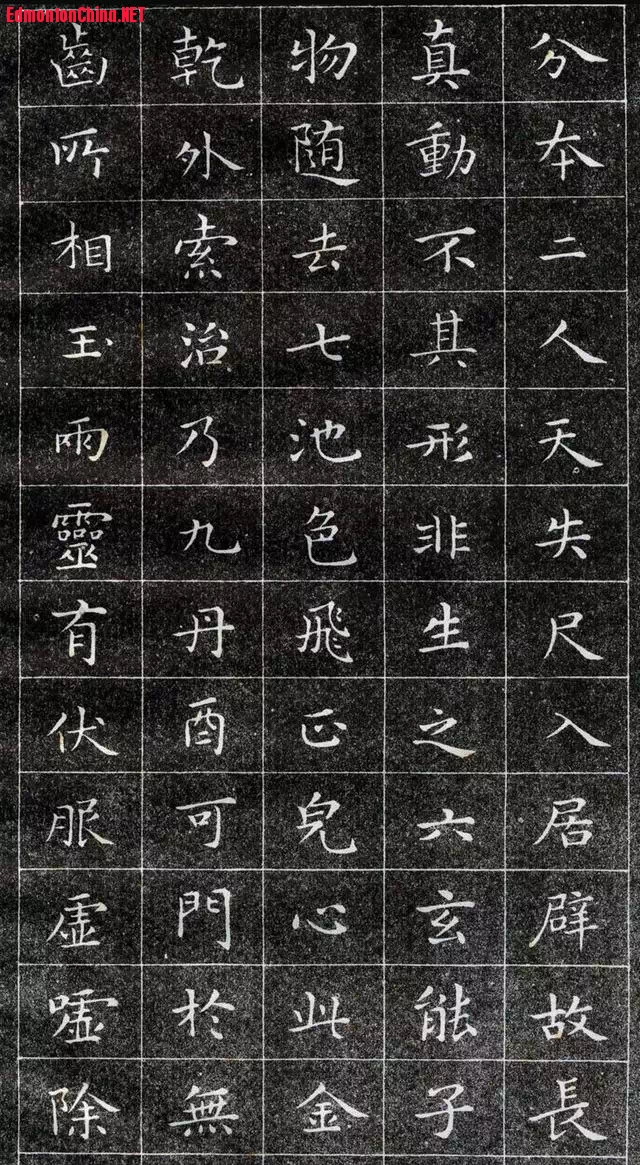 EdmontonChina.NET
分本二人天失尺入居辟故長
真動不其形非生之六玄能子
物随去七池色飛正皃心此金
乾外索治乃九丹酉可門於無
齒所相玉雨靈有伏服虛嘘除